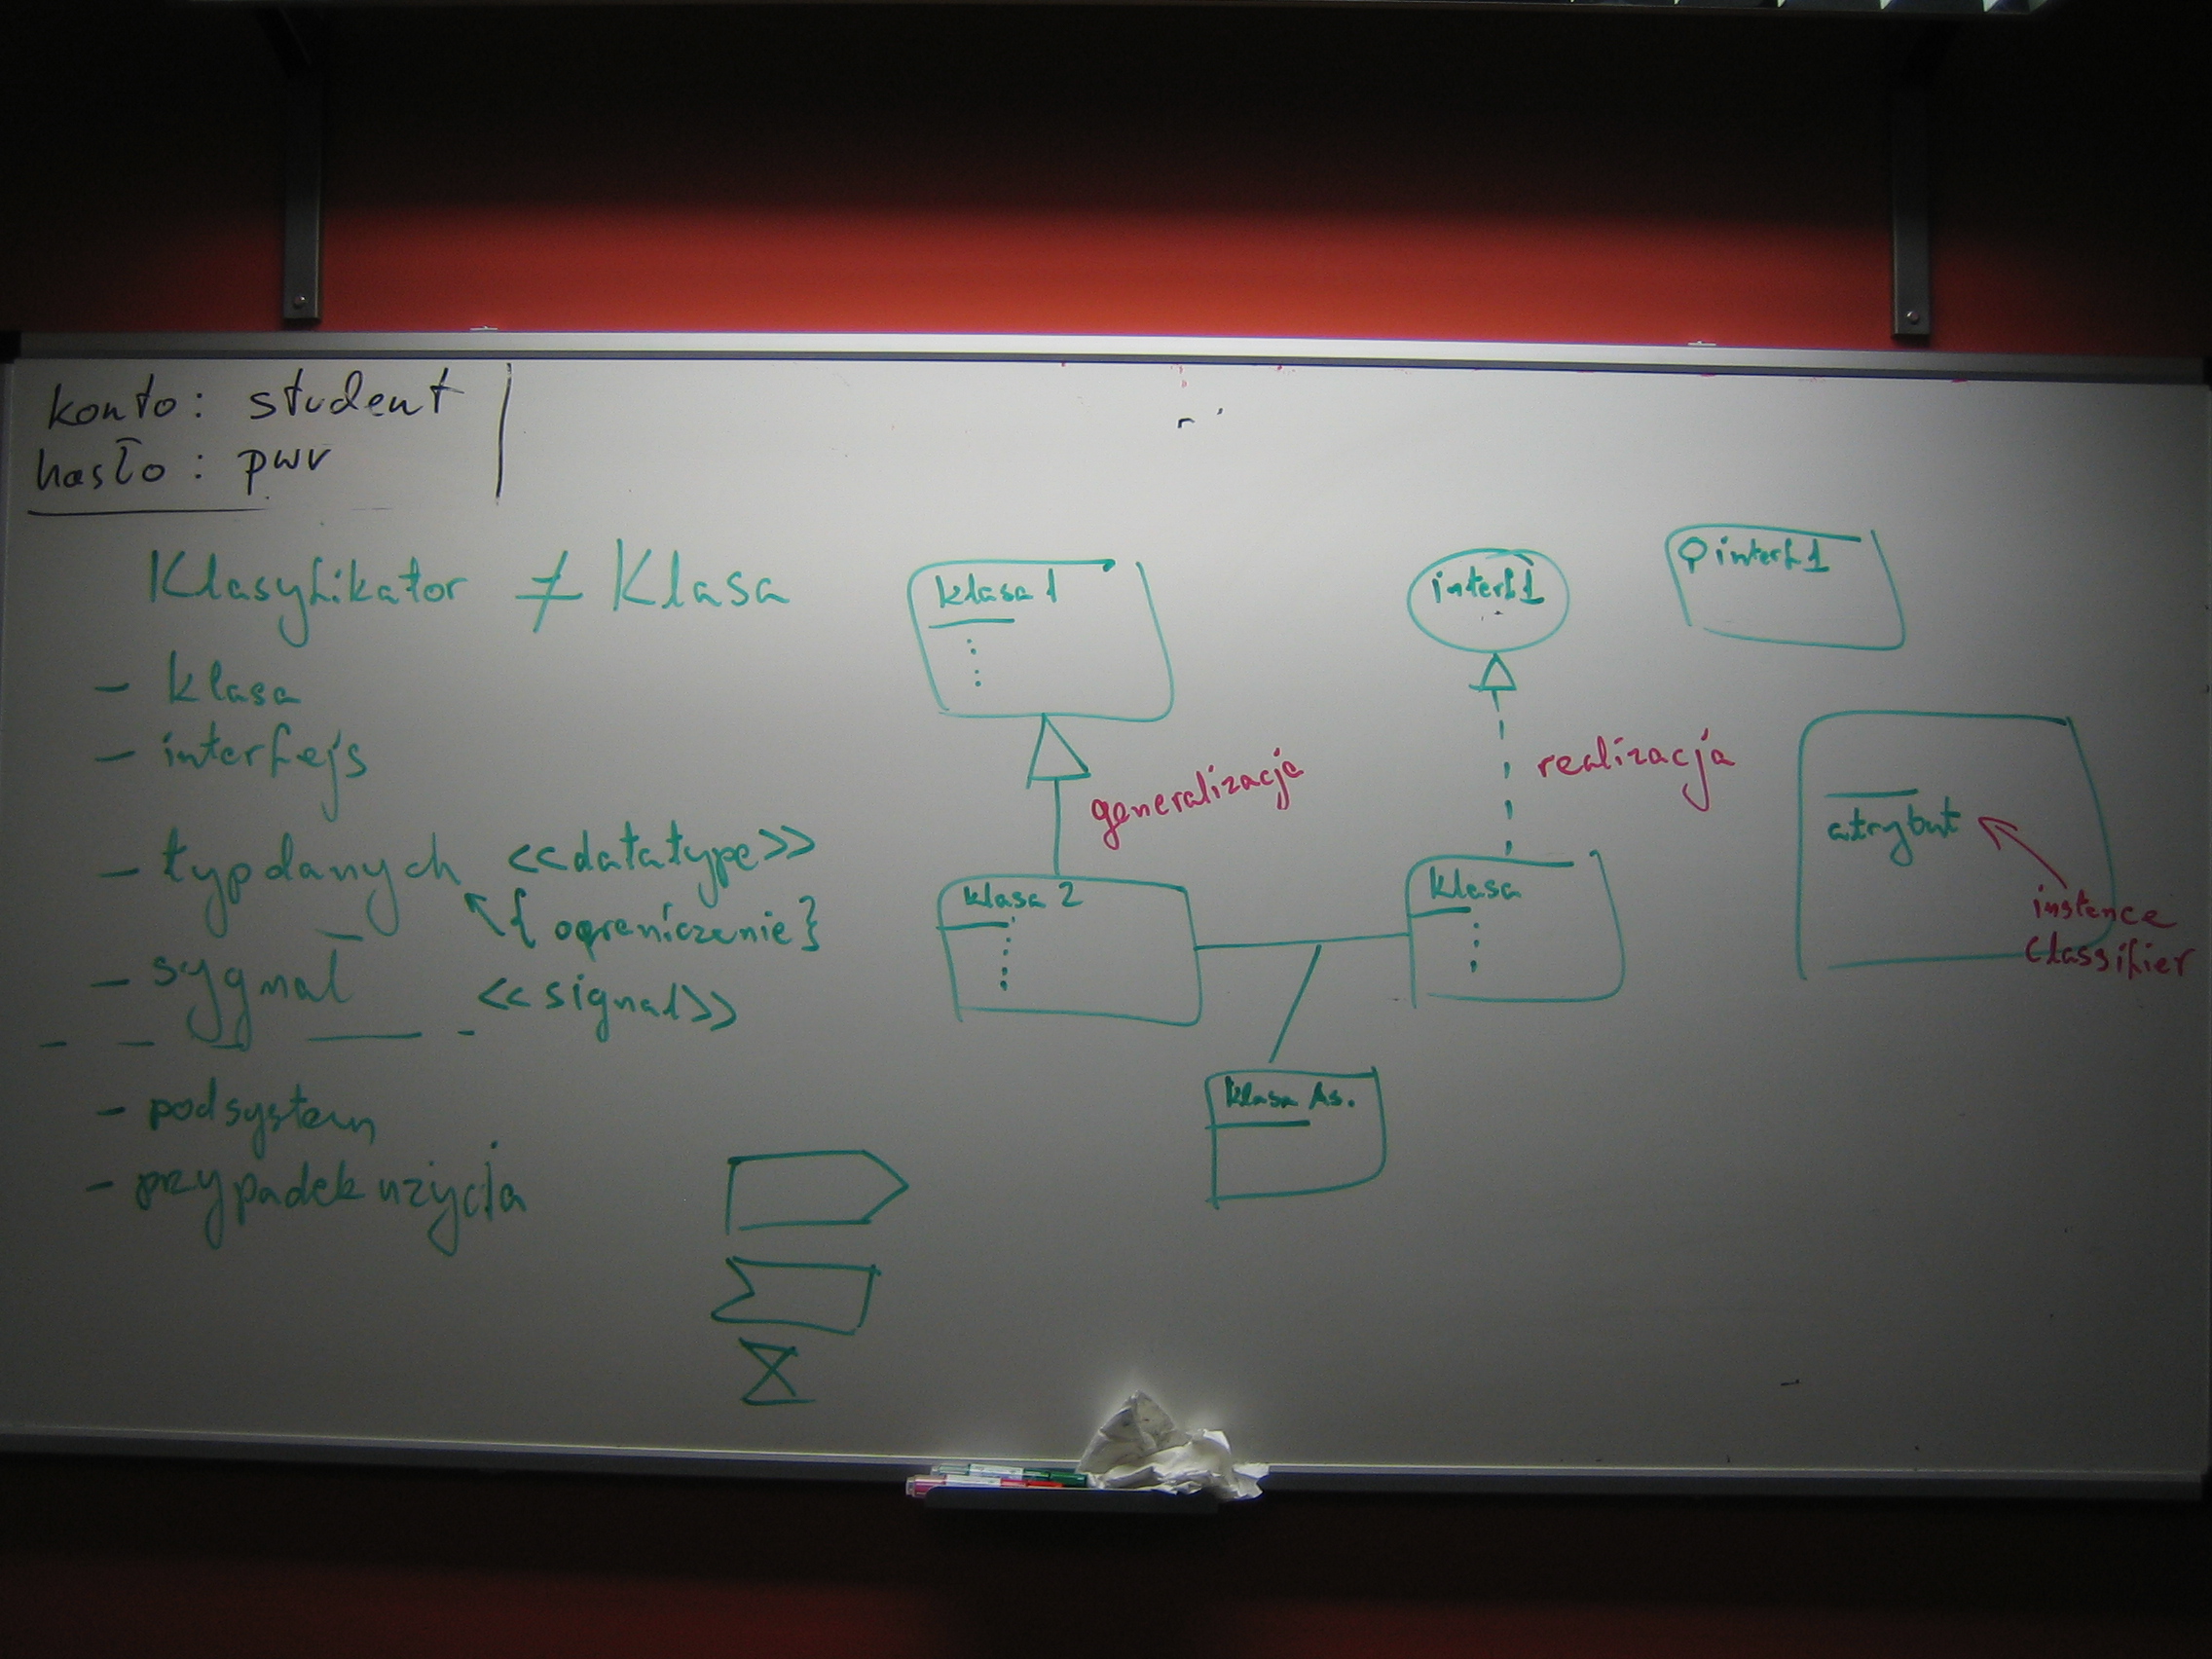 konto: student
hasło: pwr
Klasyfikator ≠ Klasa
- klasa
- interfejs
- typ danych <<datatype>>
{ograniczenie}
- sygnał <<signal>>
- podsystem
- przypadek użycia
klasa 1
generalizacja
klasa 2
interf1
realizacja
klasa
klasa As.
interf1
atrybut
instence
classifier